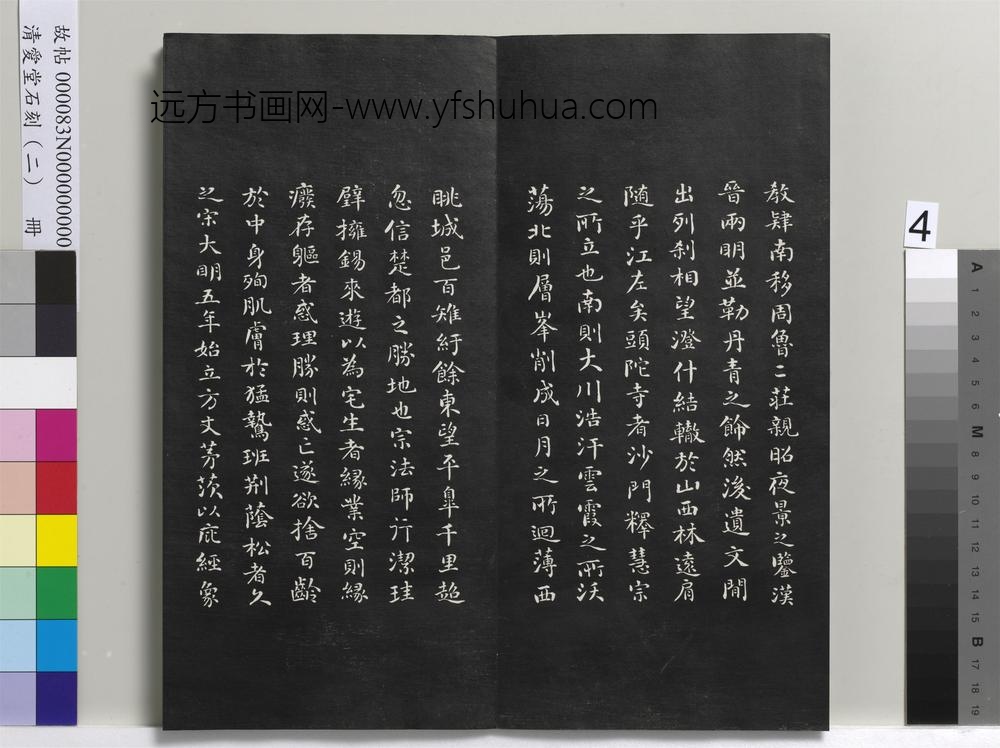 教肄南移周魯二莊親昭夜景之鑒漢
晉兩明並勒丹青之飾然後遺文間
出列刹相望澄什結轍於山西林遠肩
随乎江左矣頭陀寺者沙門釋慧宗
之所立也南則大川浩汗雲霞之所沃
蕩北則層峯削成日月之所迴薄西
眺城邑百雉紆餘東望平皐千里超
忽信楚都之勝地也宗法師行潔珪
璧擁錫來遊以為宅生者緣業空則緣
癈存軀者惑理勝則惑亡遂欲捨百齡
於中身殉肌膚於猛鷙班荊蔭松者久
之宋大明五年始立方丈茅茨以庇經象
远方书画网-www.yfshuhua.com
故帖 000083N000000000
清愛堂石刻(二) 冊
4
A
1
2
3
4
5
6
M
8
9
10
11
12
13
14
15
B
17
18
19